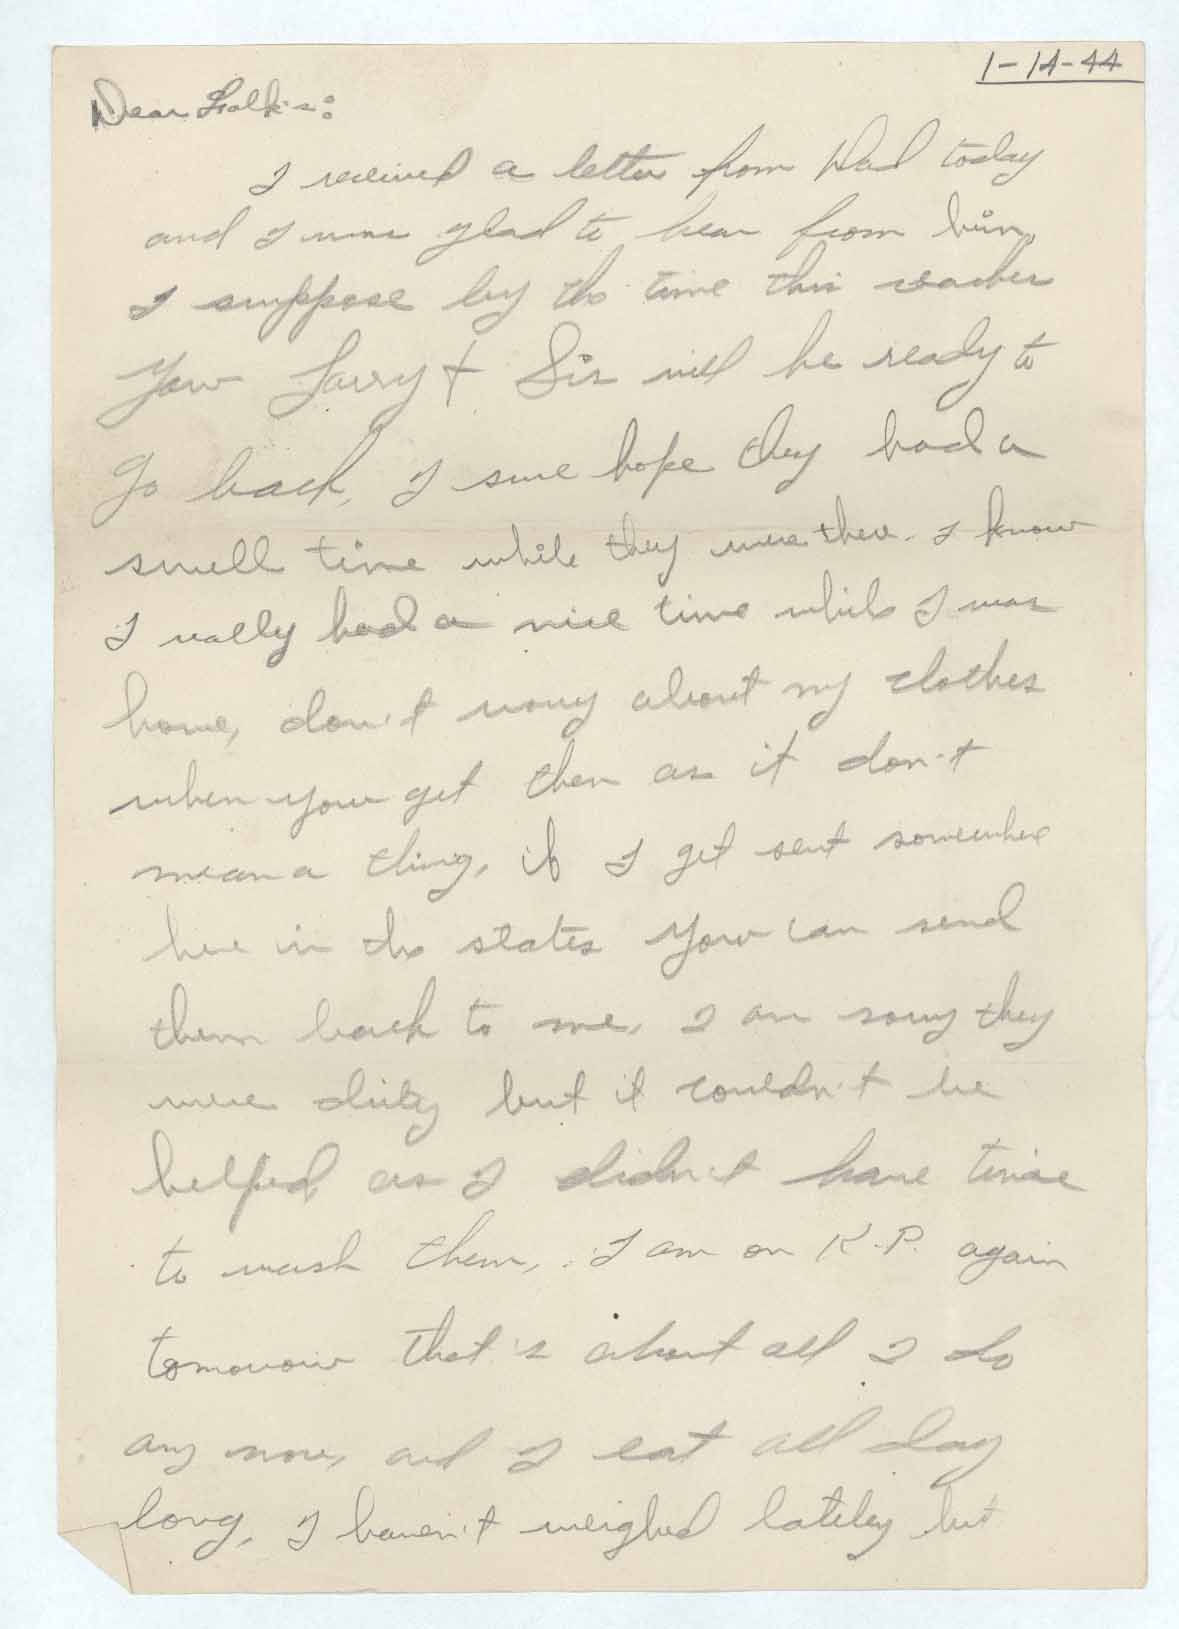 1-14-44
Dear Folk's:
I received a letter from Dad today
and I was glad to hear from him,
I suppose by the time this reaches
you Larry & Sis will be ready to
go back, I sure hope they had a
swell time while they were there. I know
I really had a nice time while I was
home, don't worry about my clothes
when you get them as it don't
mean a thing, if I get sent somewhere
here in the states you can send
them back to me, I am sorry they
were dirty but it couldn't be
helped as I didn't have time
to wash them, I am on K.P. again
tomorrow that's about all I do
any more, and I eat all day
long, I haven't weighed lately but